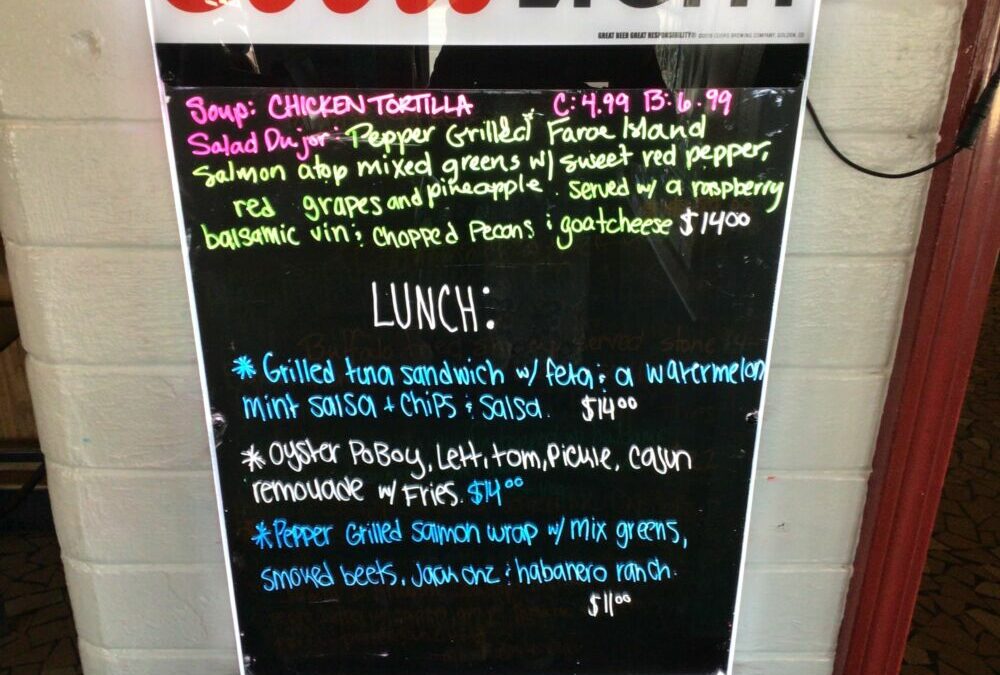 GREAT BEER GREAT RESPONSIBILITY® ©2018 COORS BREWING COMPANY, GOLDEN, CO
Soup: CHICKEN TORTILLA C: 4.99 B: 6.99
Salad Dujor: Pepper Grilled Faroe Island
Salmon atop mixed greens w/ sweet red pepper,
red grapes and pineapple. served w/ a raspberry
balsamic vin & chopped Pecans & goatcheese $14.00
LUNCH:
* Grilled tuna sandwich w/ feta & a watermelon
mint salsa + chips & salsa. $14.00
* Oyster PoBoy, Lett, tom, Pickle, cajun
remouade w/ Fries. $14.00
* Pepper Grilled salmon wrap w/ mix greens,
smoked beets, Jack onz & habanero ranch.
$11.00